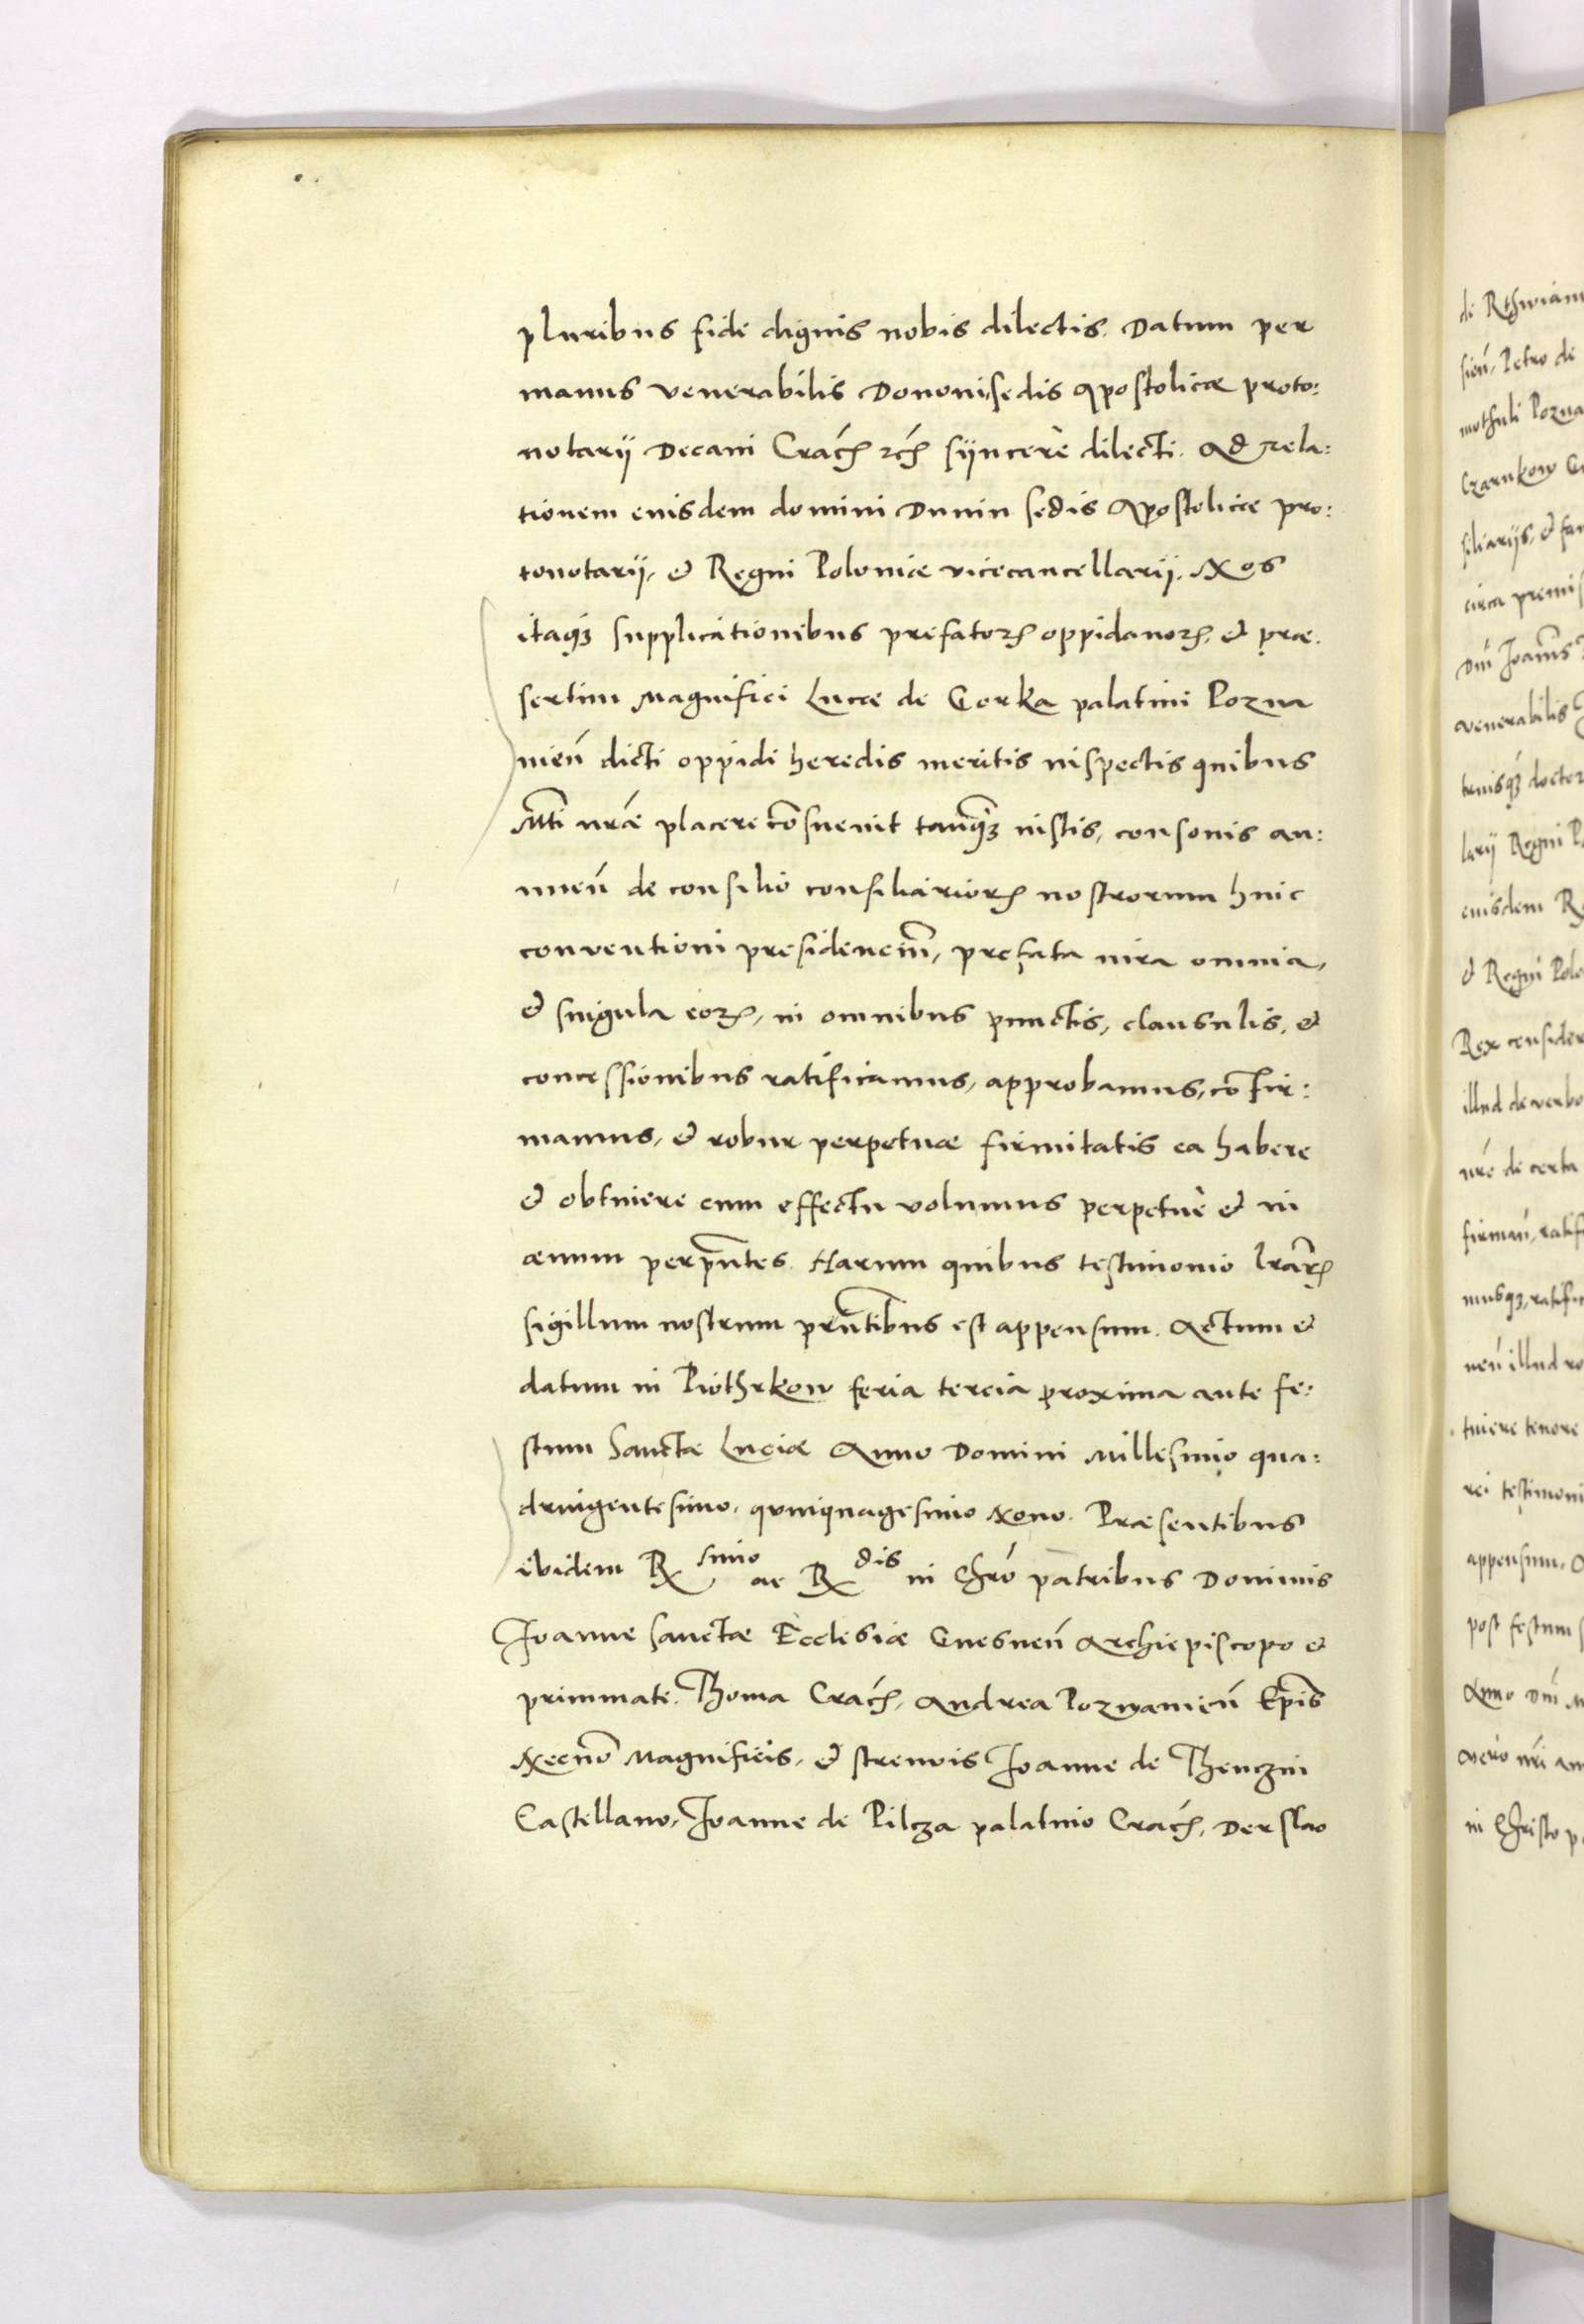 pluribus fide dignis nobis dilectis. Datum per
manus venerabilis Dononi, sedis Apostolicæ proto:
notarij Decani Crac̃ etc̃ syncerè dilecti. Ad rela:
tionem euisdem domini Dunin sedis Apostolicæ pro:
tonotarij, et Regni Poloniæ vicecancellarij. Nos
itaq3 supplicationibus prefatorꝝ oppidanorꝝ, et præ
sertim Magnifici Lucæ de Gorka palatini Pozna
nieñ dicti oppidi heredis meritis inspectis quibus
Mti nr̃æ placere cõsueuit tanq̃3 iustis, consonis an:
nueñ de consilio consiliariorꝝ nostrorum huic
conventioni presidencim̃, prefata iura omnia,
et singula eorꝝ, in omnibus punctis, clausulis, et
concessionibus ratificamus, approbamus, cõfir:
mamus, et robur perpetuæ firmitatis ea habere
et obtinere cum effectu volumus perpetuè et in
æuum perpñtes. Harum quibus testimonio lrãrꝝ
sigillum nostrum prñtibus est appensum. Actum et
datum in Piothrkow feria tercia proxima ante fe:
stum Sanctæ Luciæ Anno Domini Millesimo qua:
dringentesimo, quinquagesimo Nono. Præsentibus
ibidem R simo ac R dis in Chro patribus Dominis
Joanne sanctæ Ecclesiæ Gnesneñ Archiepiscopo et
primmate. Thoma Crac̃, Andrea Poznanieñ Ep̃is
Necnõ Magnificis, et strenuis Joanne de Thenczin
Castellano, Joanne de Pilcza palatino Crac̃, Derslao
di Rthwian
sieñ, Petro de
mothuli Pozna
Czarnkow
siliarijs, et fa
circa premis
Dñi Joannis
venerabilis
truisq3 doctor
larij Regni P
euisdem R
et Regni Polo
Rex consider
illud de verbo
nr̃e de certa
firmañ, ratif
musq3, ratific
neñ illud ro
tinere tenore
rei testimoni
appensum,
post festum
Anno Dñi M
vero nr̃i an
in Christo p